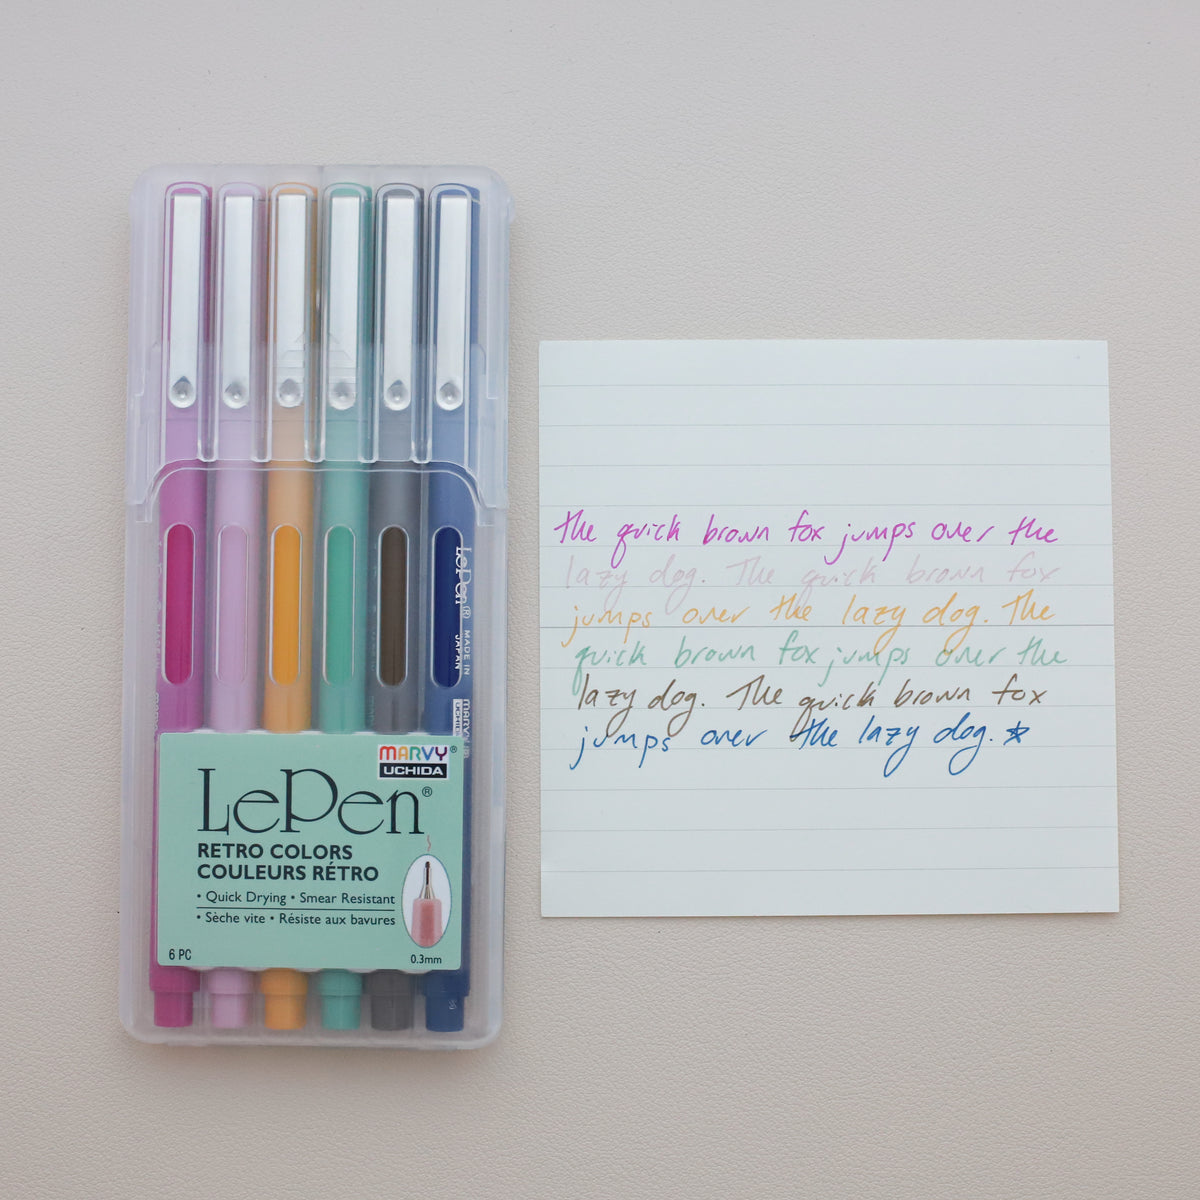 LePen® MADE IN JAPAN
MARVY®
UCHIDA
LePen®
RETRO COLORS
COULEURS RÉTRO
• Quick Drying • Smear Resistant
• Sèche vite • Résiste aux bavures
6 PC
0.3mm
The quick brown fox jumps over the
lazy dog. The quick brown fox
jumps over the lazy dog. The
quick brown fox jumps over the
lazy dog. The quick brown fox
jumps over the lazy dog.